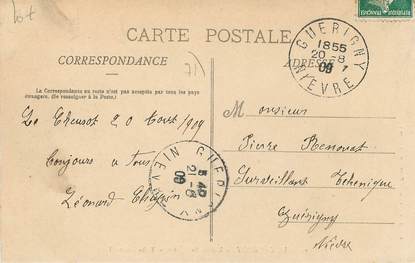 lot
CARTE POSTALE
GUERIGNY
1855
20-8
09
NIEVRE
CORRESPONDANCE
ADRESSE
71
La Correspondance au recto n'est pas acceptée par tous les pays
étrangers. (Se renseigner à la Poste.)
Le Creusot 20 Août 1909
Bonjours a tous
Léonard
GUERIGNY
5 40
21-8
09
NIEV
Monsieur
Pierre Renouat
Surveillant Téhenique
Guérigny
Nièvre